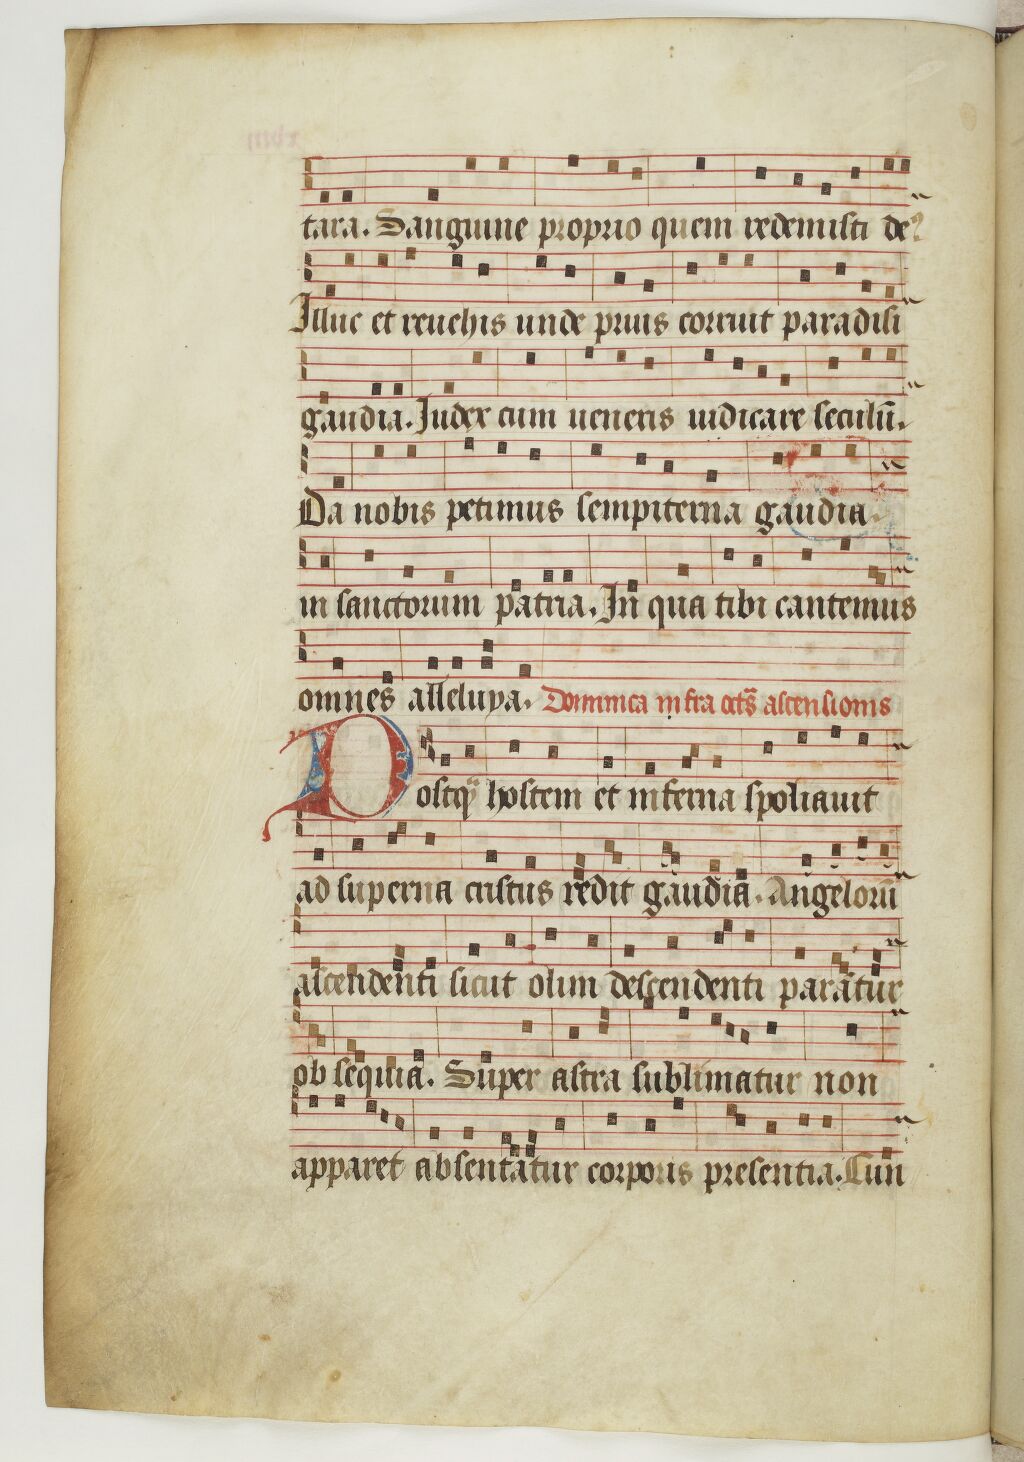 tara. Sanguine proprio quem redemisti de
Illuc et reuehis unde prius corruit paradisi
gaudia. Iudex cum ueneris iudicare seculū.
Da nobis petimus sempiterna gaudia.
in sanctorum patria. In qua tibi cantemus
omnes alleluya. Dominica infra octā ascensionis
Postq̄ hostem et inferna spoliauit
ad superna cristus redit gaudia. Angelorū
ascendenti sicut olim descendenti paratur
obsequia. Super astra sublimatur non
apparet absentatur corporis presentia. Cun